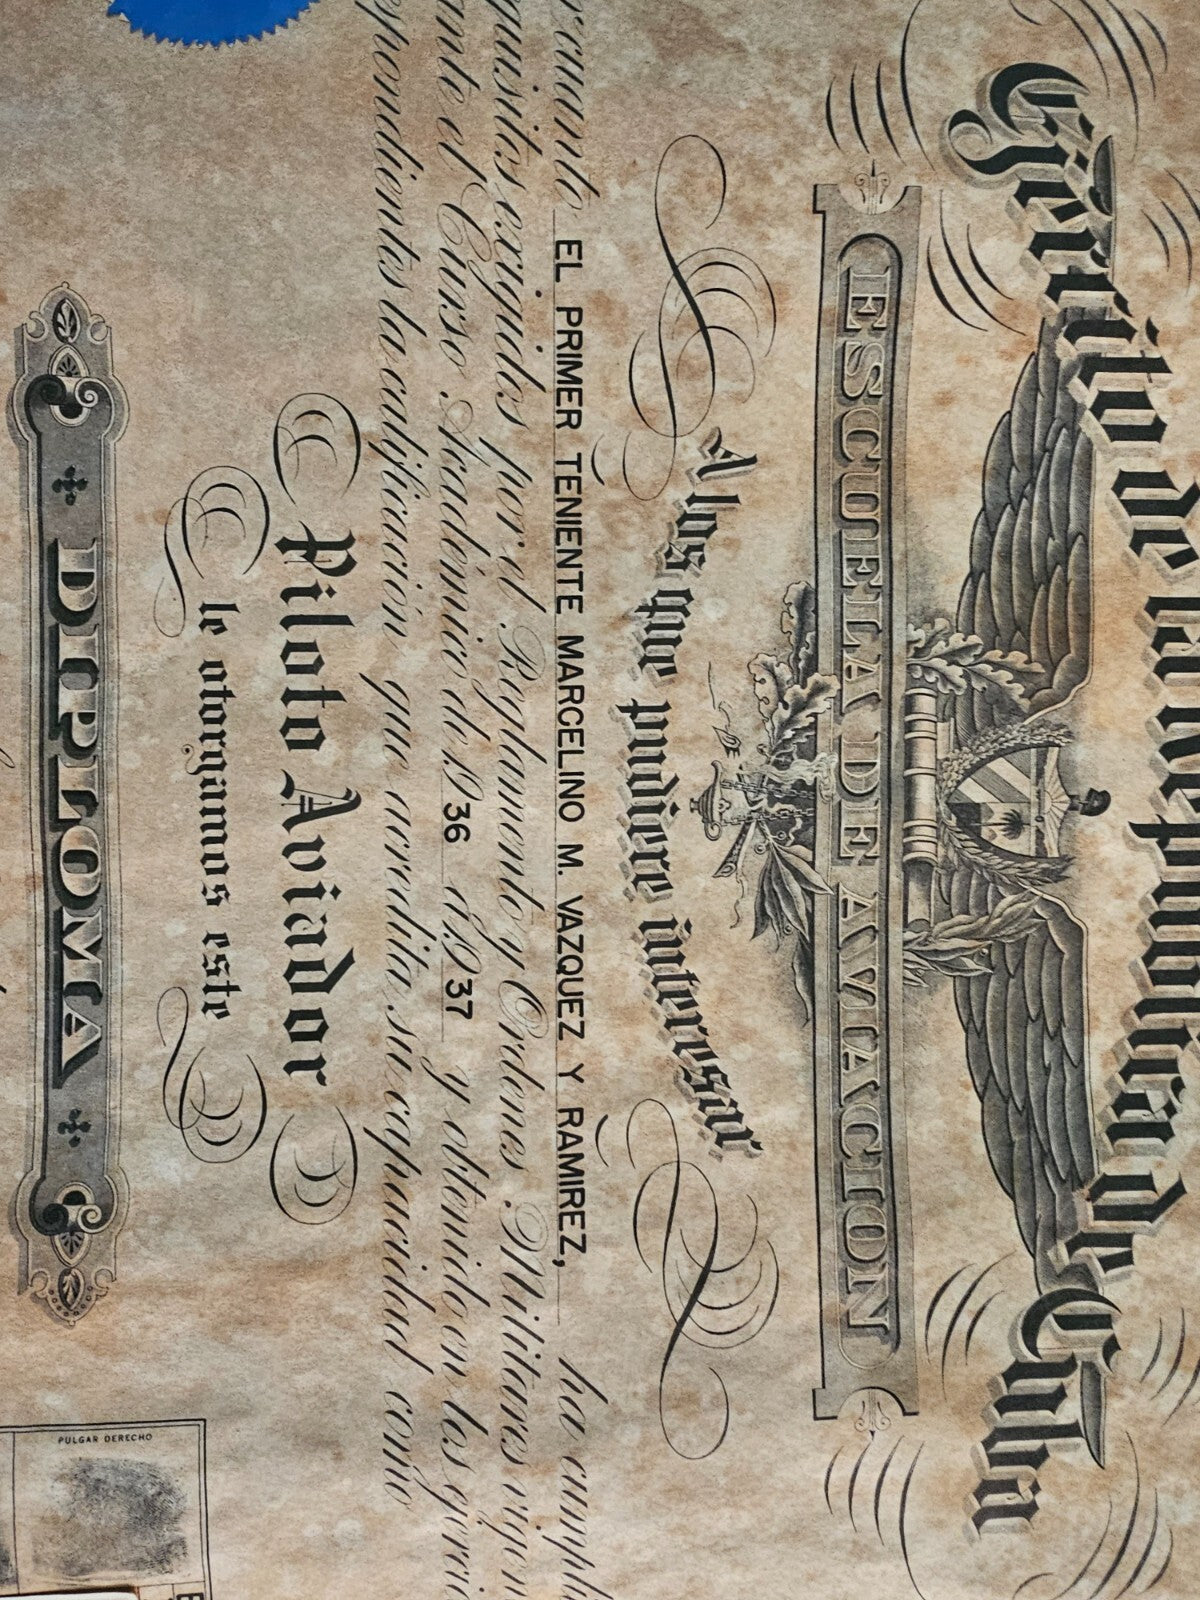 Ejército de la República de Cuba
ESCUELA DE AVIACION
A los que pudiere interesar
cuanto EL PRIMER TENIENTE MARCELINO M. VAZQUEZ Y RAMIREZ, ha cumpli
quisitos exigidos por el Reglamento y Ordenes Militares vigen
ante el Curso Académico de 1936 a 1937 y obtenido en los ejerci
spondientes la calificación que acredita su capacidad como
Piloto Aviador
le otorgamos este
DIPLOMA
PULGAR DERECHO